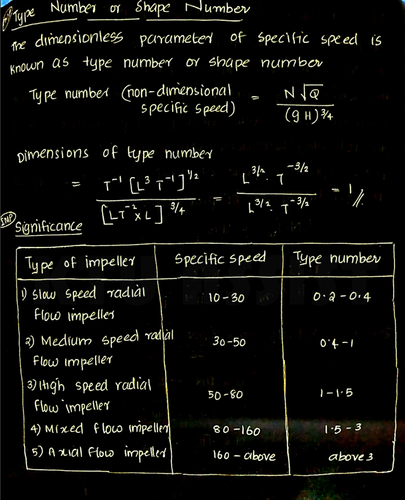 Type Number or Shape Number
The dimensionless parameter of specific speed is
known as type number or shape number
Type number (non-dimensional specific speed) = N√Q / (gH)^3/4
Dimensions of type number
= T^-1 [L^3 T^-1]^1/2 / [LT^-2 × L]^3/4 = L^3/2 · T^-3/2 / L^3/2 · T^-3/2 = 1 //
IMP
Significance
Type of impeller Specific speed Type number
1) Slow speed radial flow impeller 10-30 0.2-0.4
2) Medium speed radial flow impeller 30-50 0.4-1
3) High speed radial flow impeller 50-80 1-1.5
4) Mixed flow impeller 80-160 1.5-3
5) Axial flow impeller 160-above above 3